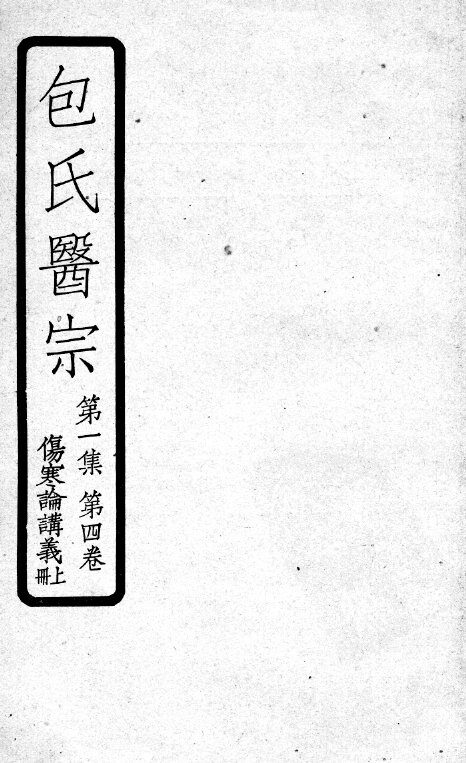 包氏醫宗
第一集 第四卷
傷寒論講義上冊